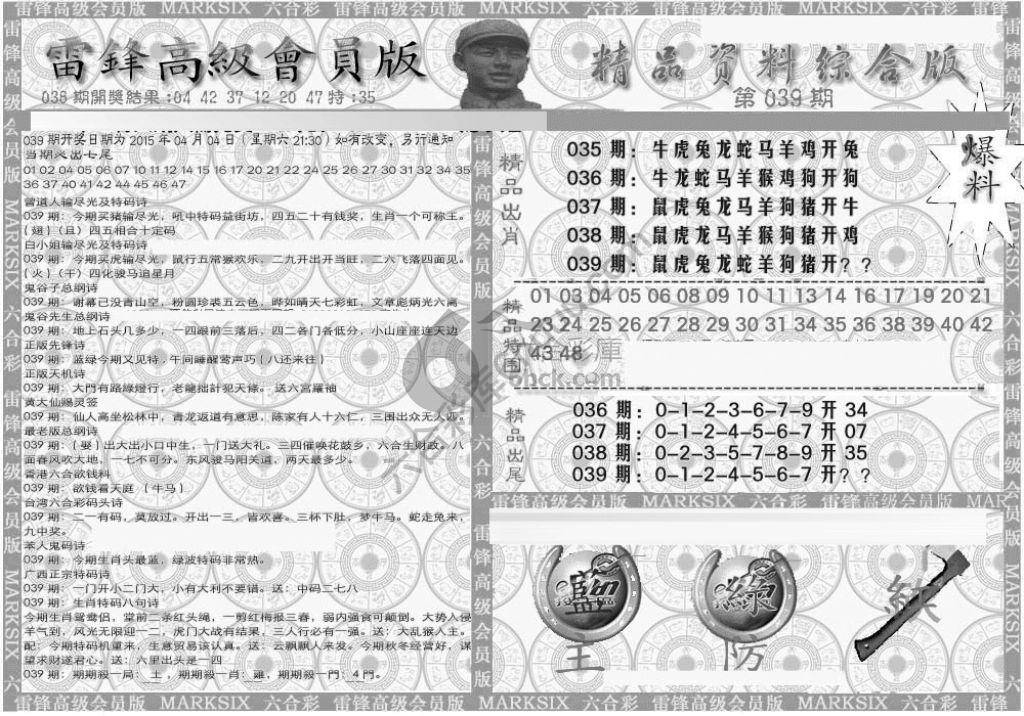 雷锋高级会员版 MARKSIX 六合彩 雷锋高级会员版 MARKSIX 六合彩 雷锋高级会员版 MARKSIX 六合彩 雷锋
雷鋒高級會員版
精品资料综合版
038期開獎結果:04 42 37 12 20 47特:35
第 039 期
爆料
039期开奖日期为2015年04月04日(星期六21:30)如有改变,另行通知
当期必出七尾
01 02 04 05 06 07 10 11 12 14 15 16 17 20 21 22 24 25 26 27 30 31 32 34 35
36 37 40 41 42 44 45 46 47
曾道人输尽光及特码诗
039期:今期买猪输尽光,吼中特码益街坊,四五二十有钱奖,生肖一个可称王。
(翅)(且)四五相合十定码
白小姐输尽光及特码诗
039期:今期买虎输尽光,鼠行五常猴欢乐,二九开出开当旺,二六飞落四面见。
(火)(干)四化骏马追星月
鬼谷子总纲诗
039期:谢幕已没青山空,粉圆珍裘五云色,晔如晴天七彩虹,文章彪炳光六离
鬼谷先生总纲诗
039期:地上石头几多少,一四跟前三落后,四二各门各低分,小山座座连天边
正版先锋诗
039期:蓝绿今期又见特,午间睡醒莺声巧(八还来往)
正版天机诗
039期:大門有路綠燈行,老龍拙計犯天條。送六宫羅袖
黄大仙赐灵签
039期:仙人高坐松林中,青龙返道有意思,陈家有人十六仁,三围出众无人匹。
最老版总纲诗
039期:(娶)出大出小口中生,一门送大礼。三四催唤花鼓乡,六合生财政。八
面春风吹大地,一七不可分。东风骏马阳关道,两天最多少。
香港六合欲钱料
039期:欲钱看天庭 (牛马)
台湾六合彩码头诗
039期:二一有码,莫放过。开出一三,皆欢喜。三杯下肚,梦牛马。蛇走兔来,
九中奖。
苯人鬼码诗
039期:今期生肖头最蓝,绿波特码非常热。
广西正宗特码诗
039期:一门开小二门大,小有大利不要错。送:中码二七八
039期:生肖特码八句诗
今期生肖鸳鸯侣,堂前二条红头绳,一剪红梅报三春,弱内强食可颠倒。大势入侵
羊气到,风光无限迎一二,虎门大战有结果,三人行必有一强。送:大乱猴人主。
配:今期特码机重来,生意贸易该认真。送:云飘飘人来发。今期秋冬经营好,谋
望求财遂君心。送:六里出头是一四
039期:期期殺一局:土,期期殺一肖:雞,期期殺一門:4門。
精品出肖
035 期:牛虎兔龙蛇马羊鸡开兔
036 期:牛龙蛇马羊猴鸡狗开狗
037 期:鼠虎兔龙马羊狗猪开牛
038 期:鼠虎龙马羊猴狗猪开鸡
039 期:鼠虎兔龙蛇羊狗猪开??
精品特围
01 03 04 05 06 08 09 10 11 13 14 16 17 19 20 21
23 24 25 26 27 28 29 30 31 34 35 36 38 39 40 42
43 48
精品出尾
036 期:0-1-2-3-6-7-9 开 34
037 期:0-1-2-4-5-6-7 开 07
038 期:0-2-3-5-7-8-9 开 35
039 期:0-1-2-4-5-6-7 开??
雷锋高级会员版 MARKSIX 六合彩 雷锋高级会员版 MARKSIX
藍 綠 鉄
主 防
雷锋高级会员版 MARKSIX 六合彩 雷锋高级会员版 MARKSIX 六合彩 雷锋高级会员版 MARKSIX 六合彩 雷锋